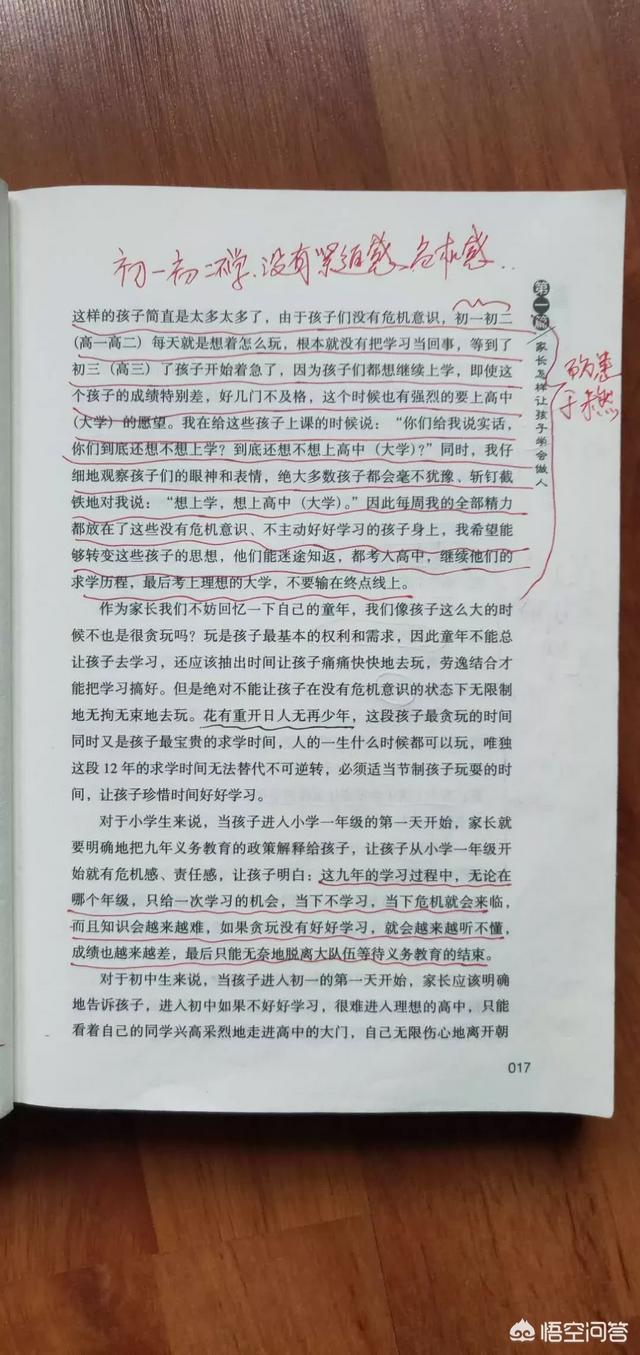 初一初二学.没有紧迫感、危机感..
这样的孩子简直是太多太多了，由于孩子们没有危机意识，初一初二
（高一高二）每天就是想着怎么玩，根本就没有把学习当回事，等到了
初三（高三）了孩子开始着急了，因为孩子们都想继续上学，即使这
个孩子的成绩特别差，好几门不及格，这个时候也有强烈的要上高中
（大学）的愿望。我在给这些孩子上课的时候说：“你们给我说实话，
你们到底还想不想上学？到底还想不想上高中（大学）？”同时，我仔
细地观察孩子们的眼神和表情，绝大多数孩子都会毫不犹豫、斩钉截
铁地对我说：“想上学，想上高中（大学）。”因此每周我的全部精力
都放在了这些没有危机意识、不主动好好学习的孩子身上，我希望能
够转变这些孩子的思想，他们能迷途知返，都考入高中，继续他们的
求学历程，最后考上理想的大学，不要输在终点线上。
作为家长我们不妨回忆一下自己的童年，我们像孩子这么大的时
候不也是很贪玩吗？玩是孩子最基本的权利和需求，因此童年不能总
让孩子去学习，还应该抽出时间让孩子痛痛快快地去玩，劳逸结合才
能把学习搞好。但是绝对不能让孩子在没有危机意识的状态下无限制
地无拘无束地去玩。花有重开日人无再少年，这段孩子最贪玩的时间
同时又是孩子最宝贵的求学时间，人的一生什么时候都可以玩，唯独
这段 12 年的求学时间无法替代不可逆转，必须适当节制孩子玩耍的时
间，让孩子珍惜时间好好学习。
对于小学生来说，当孩子进入小学一年级的第一天开始，家长就
要明确地把九年义务教育的政策解释给孩子，让孩子从小学一年级开
始就有危机感、责任感，让孩子明白：这九年的学习过程中，无论在
哪个年级，只给一次学习的机会，当下不学习，当下危机就会来临，
而且知识会越来越难，如果贪玩没有好好学习，就会越来越听不懂，
成绩也越来越差，最后只能无奈地脱离大队伍等待义务教育的结束。
对于初中生来说，当孩子进入初一的第一天开始，家长应该明确
地告诉孩子，进入初中如果不好好学习，很难进入理想的高中，只能
看着自己的同学兴高采烈地走进高中的大门，自己无限伤心地离开朝
第一篇
家长怎样让孩子学会做人
于未燃
017
悟空问答